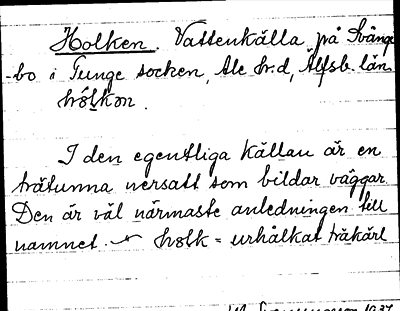 Holken. Vattenkälla på Svängs
-bo i Tunge socken, Ale hrd, Älfsb. län.
hólkon.
I den egentliga källan är en
trätunna nersatt som bildar väggar.
Den är väl närmaste anledningen till
namnet. holk = urhålkat träkärl
1937